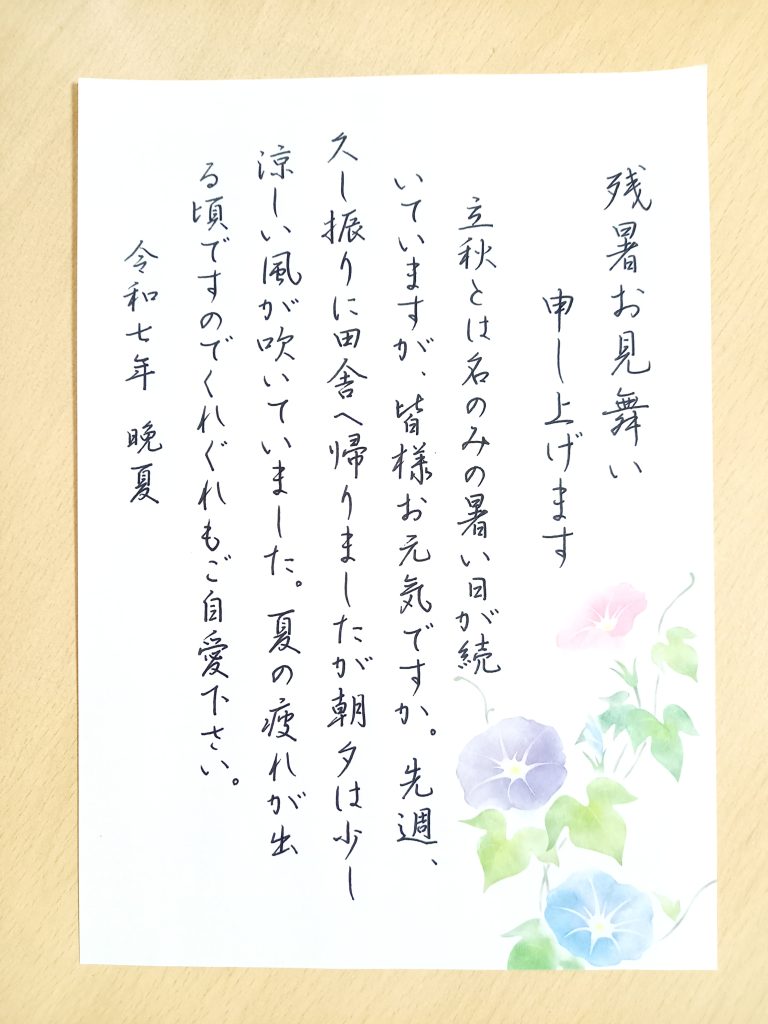 残暑お見舞い
申し上げます
立秋とは名のみの暑い日が続
いていますが、皆様お元気ですか。先週、
久し振りに田舎へ帰りましたが朝夕は少し
涼しい風が吹いていました。夏の疲れが出
る頃ですのでくれぐれもご自愛下さい。
令和七年 晩夏